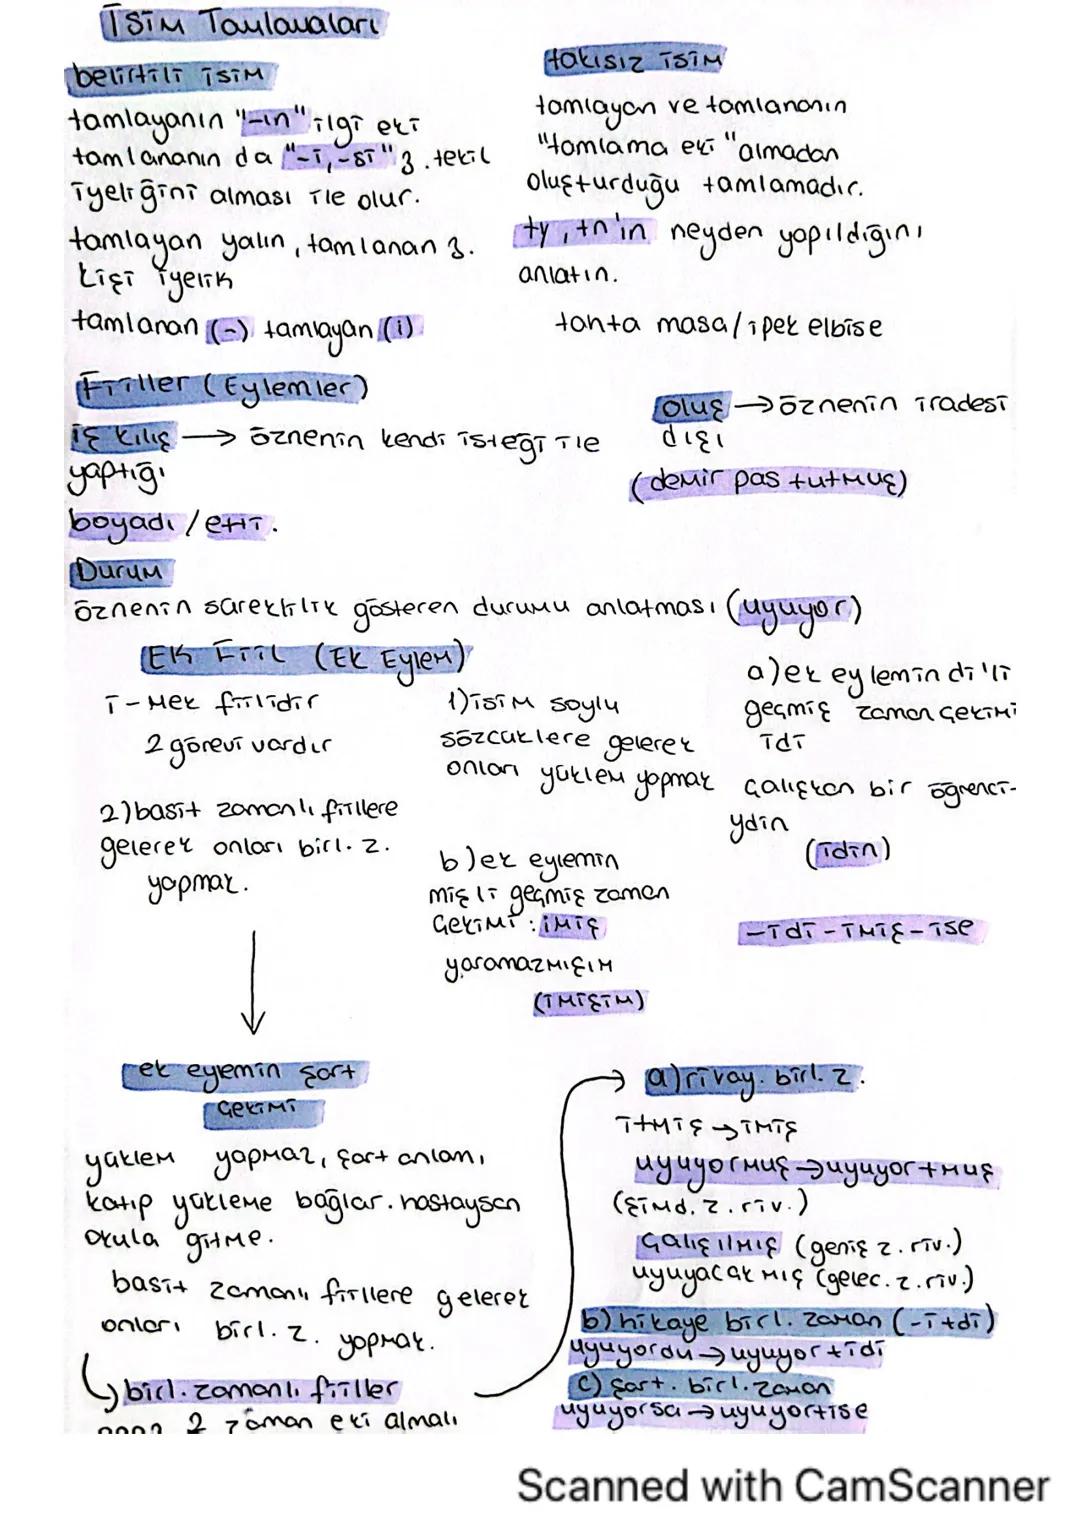 İSİM Tamlamaları
belirtili isim
tamlayanın "-ın" ilgi eki
tamlananın da "-i, -si" 3. tekil
iyeliğini alması ile olur.
tamlayan yalın, tamlanan 3.
kişi iyelik
tamlanan (-) tamlayan (i)
takısız isim
tamlayan ve tamlananın
"tamlama eki" almadan
oluşturduğu tamlamadır.
ty, tn'in neyden yapıldığını
anlatın.
tahta masa/ipek elbise
Fiiller (Eylemler)
iş kılış → öznenin kendi isteği ile
yaptığı
boyadı / etti.
oluş → öznenin iradesi
dışı
(demir pas tutmuş)
Durum
öznenin süreklilik gösteren durumu anlatması (uyuyor)
EK FİİL (Ek Eylem)
i-mek fiilidir
2 görevi vardır
1) isim soylu
sözcüklere gelerek
onları yüklem yapmak
2) basit zamanlı fiillere
gelerek onları birl. z.
yapmak.
a) ek eylemin di'li
geçmiş zaman çekimi
idi
çalışkan bir öğrenci-
ydin
(idin)
b) ek eylemin
miş li geçmiş zaman
çekimi : imiş
yaramazmışım
(imişim)
-idi -imiş -ise
ek eylemin şart
çekimi
yüklem yapmaz, şart anlamı
katıp yükleme bağlar. hastaysan
okula gitme.
basit zamanlı fiillere gelerek
onları birl. z. yapmak.
birl. zamanlı fiiller
2 zaman eki almalı
a) rivay. birl. z.
i+miş → imiş
uyuyormuş → uyuyor+muş
(şimd. z. riv.)
çalışılmış (geniş z. riv.)
uyuyacakmış (gelec. z. riv.)
b) hikaye birl. zaman (-i+di)
uyuyordu → uyuyor+idi
c) şart. birl. zaman
uyuyorsa → uyuyor+ise
Scanned with CamScanner